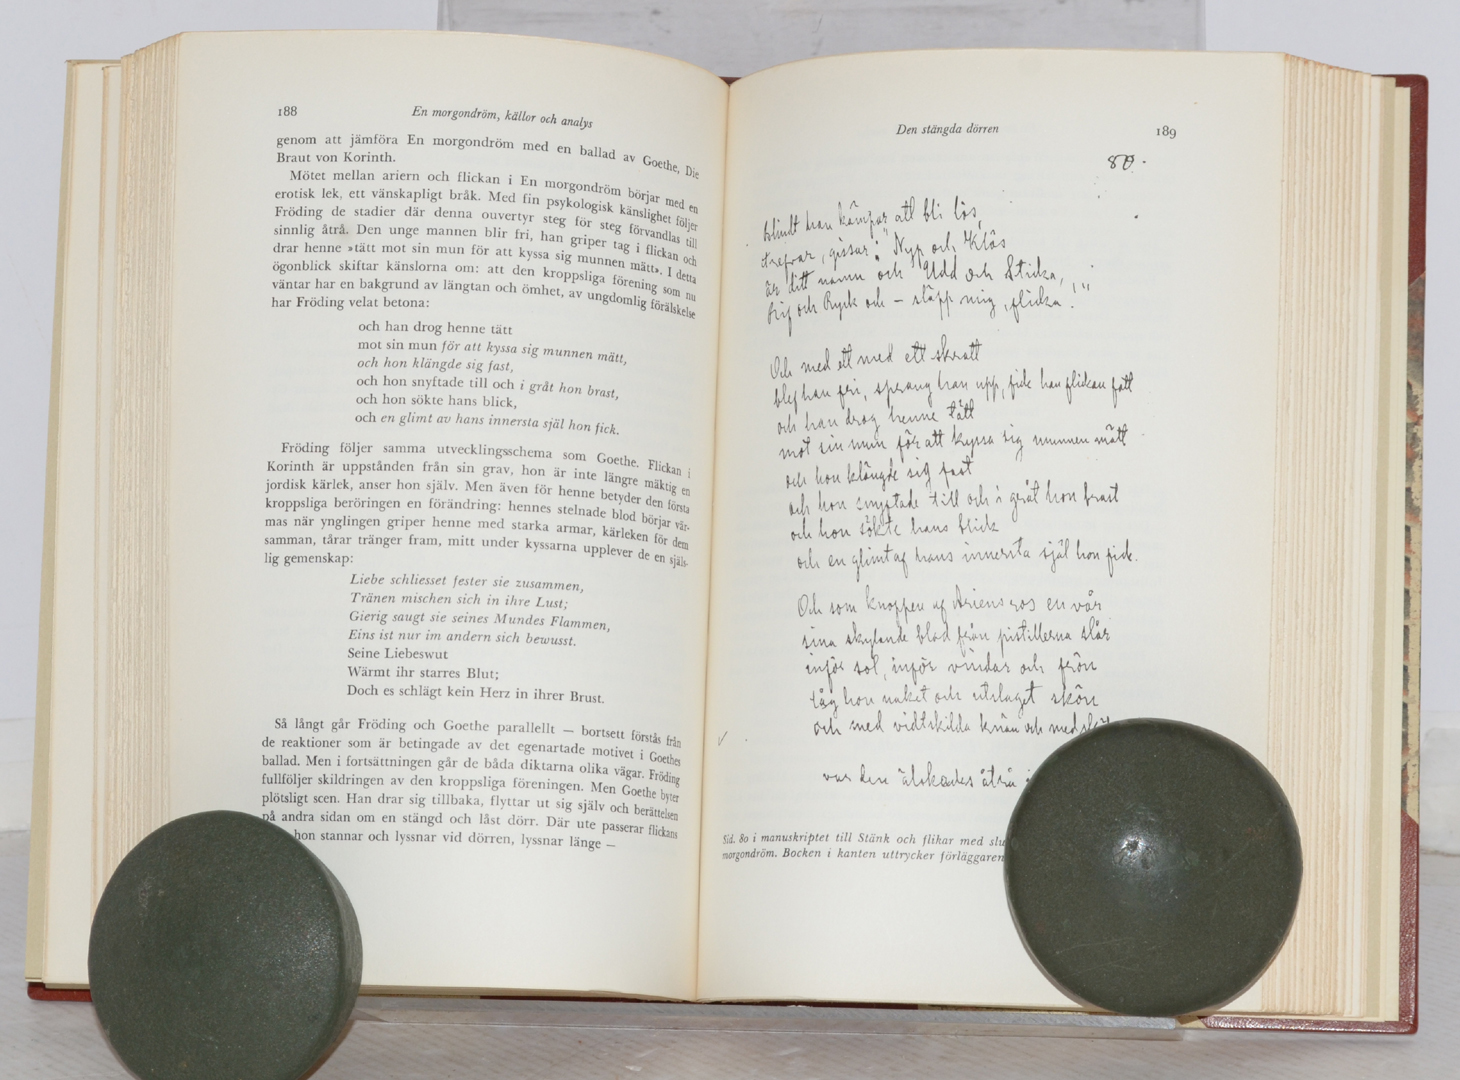 188
En morgondröm, källor och analys
genom att jämföra En morgondröm med en ballad av Goethe, Die
Braut von Korinth.
Mötet mellan ariern och flickan i En morgondröm börjar med en
erotisk lek, ett vänskapligt bråk. Med fin psykologisk känslighet följer
Fröding de stadier där denna ouvertyr steg för steg förvandlas till
sinnlig åtrå. Den unge mannen blir fri, han griper tag i flickan och
drar henne »tätt mot sin mun för att kyssa sig munnen mätt». I detta
ögonblick skiftar känslorna om: att den kroppsliga förening som nu
väntar har en bakgrund av längtan och ömhet, av ungdomlig förälskelse
har Fröding velat betona:
och han drog henne tätt
mot sin mun för att kyssa sig munnen mätt,
och hon klängde sig fast,
och hon snyftade till och i gråt hon brast,
och hon sökte hans blick,
och en glimt av hans innersta själ hon fick.
Fröding följer samma utvecklingsschema som Goethe. Flickan i
Korinth är uppstånden från sin grav, hon är inte längre mäktig en
jordisk kärlek, anser hon själv. Men även för henne betyder den första
kroppsliga beröringen en förändring: hennes stelnade blod börjar vär-
mas när ynglingen griper henne med starka armar, kärleken för dem
samman, tårar tränger fram, mitt under kyssarna upplever de en själs-
lig gemenskap:
Liebe schliesset fester sie zusammen,
Tränen mischen sich in ihre Lust;
Gierig saugt sie seines Mundes Flammen,
Eins ist nur im andern sich bewusst.
Seine Liebeswut
Wärmt ihr starres Blut;
Doch es schlägt kein Herz in ihrer Brust.
Så långt går Fröding och Goethe parallellt — bortsett förstås från
de reaktioner som är betingade av det egenartade motivet i Goethes
ballad. Men i fortsättningen går de båda diktarna olika vägar. Fröding
fullföljer skildringen av den kroppsliga föreningen. Men Goethe byter
plötsligt scen. Han drar sig tillbaka, flyttar ut sig själv och berättelsen
på andra sidan om en stängd och låst dörr. Där ute passerar flickans
hon stannar och lyssnar vid dörren, lyssnar länge —
Den stängda dörren
189
80.
blindt han kämpar att bli lös,
trefvar, gissar: "Nyp och Klös
är ditt namn och Udd och Sticka,
Rif och Ryck och — släpp mig, flicka!"
Och med ett med ett skratt
blef han fri, sprang han upp, fick han flickan fatt
och han drog henne tätt
mot sin mun för att kyssa sig munnen mätt
och hon klängde sig fast
och hon snyftade till och i gråt hon brast
och hon sökte hans blick
och en glimt af hans innersta själ hon fick.
Och som knoppen af Ariens ros en vår
sina skylande blad från pistillerna slår
inför sol, inför vindar och frön
låg hon naket och utslaget skön
och med vidtskilda knän och med
var den älskades åtrå
Sid. 80 i manuskriptet till Stänk och flikar med
morgondröm. Bocken i kanten uttrycker förläggaren